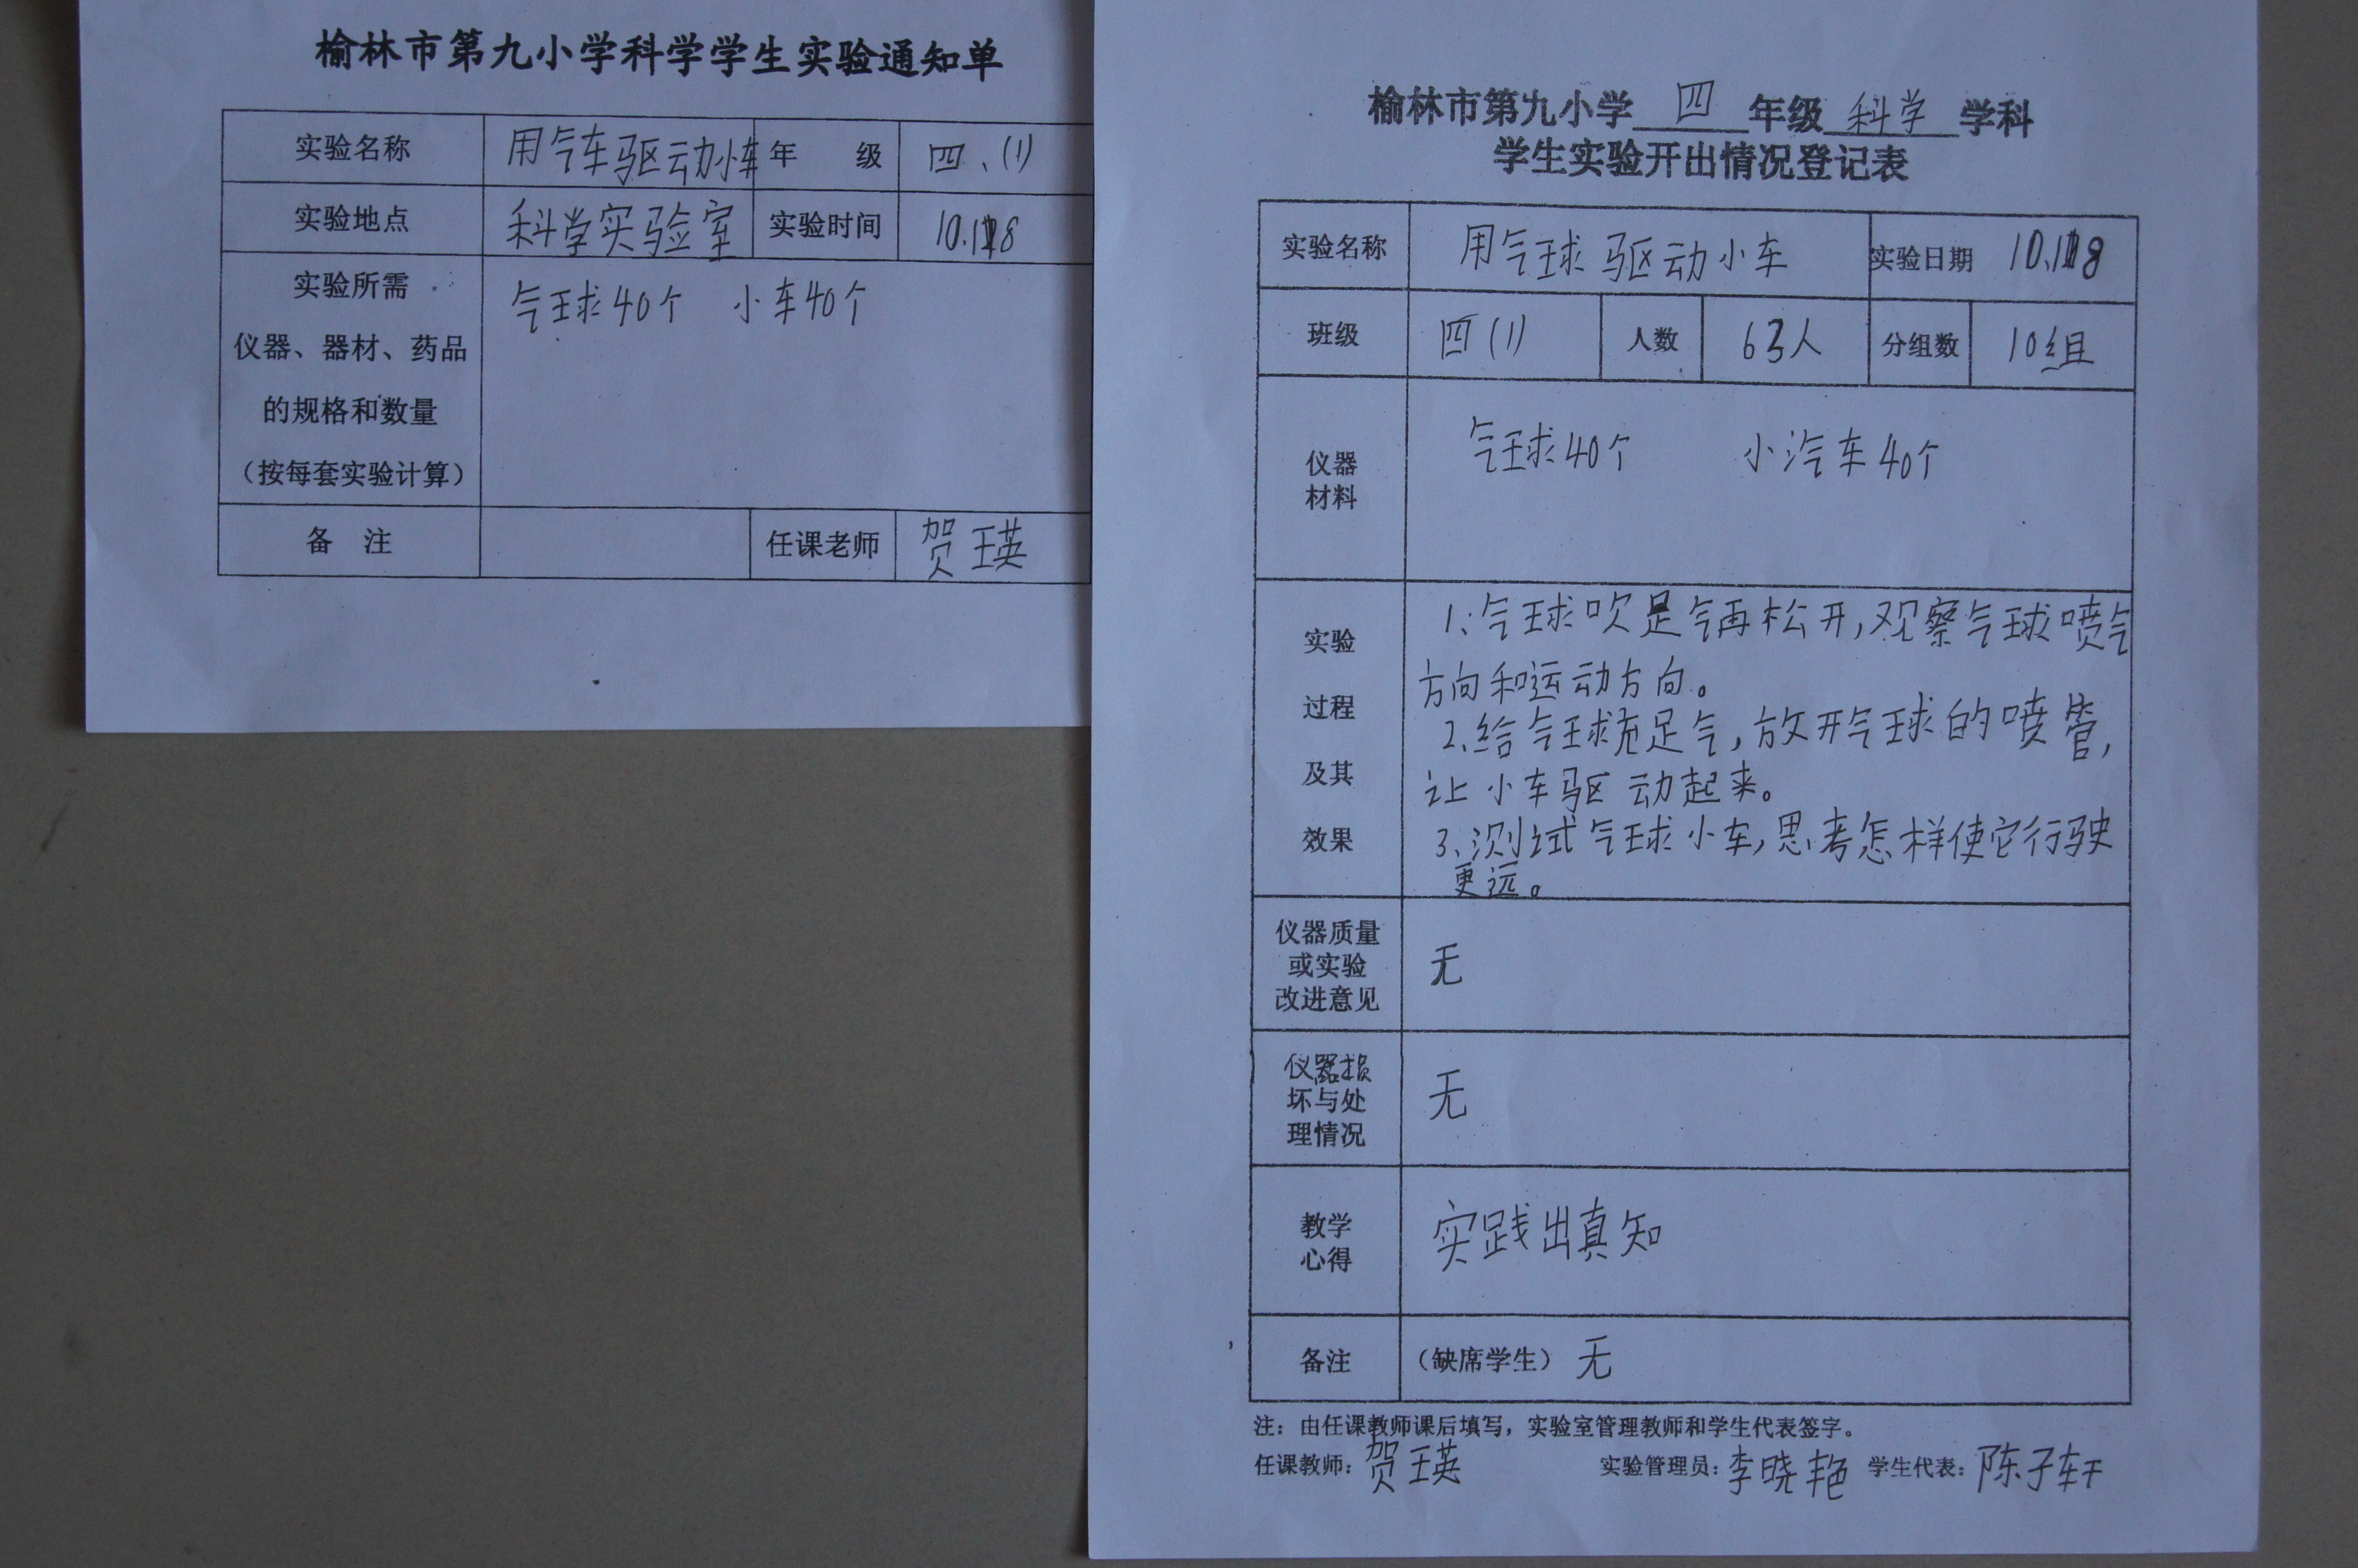 榆林市第九小学科学学生实验通知单
实验名称 用气车驱动小车 年 级 四、(1)
实验地点 科学实验室 实验时间 10.18
实验所需
仪器、器材、药品
的规格和数量
（按每套实验计算）
气球40个 小车40个
备 注 任课老师 贺瑛
榆林市第九小学 四 年级 科学 学科
学生实验开出情况登记表
实验名称 用气球驱动小车 实验日期 10.18
班级 四(1) 人数 63人 分组数 10组
仪器
材料
气球40个 小汽车40个
实验
过程
及其
效果
1、气球吹足气再松开,观察气球喷气
方向和运动方向。
2、给气球充足气,放开气球的喷管,
让小车驱动起来。
3、测试气球小车,思考怎样使它行驶
更远。
仪器质量
或实验
改进意见
无
仪器损
坏与处
理情况
无
教学
心得
实践出真知
备注 （缺席学生） 无
注：由任课教师课后填写，实验室管理教师和学生代表签字。
任课教师：贺瑛 实验管理员：李晓艳 学生代表：陈子轩